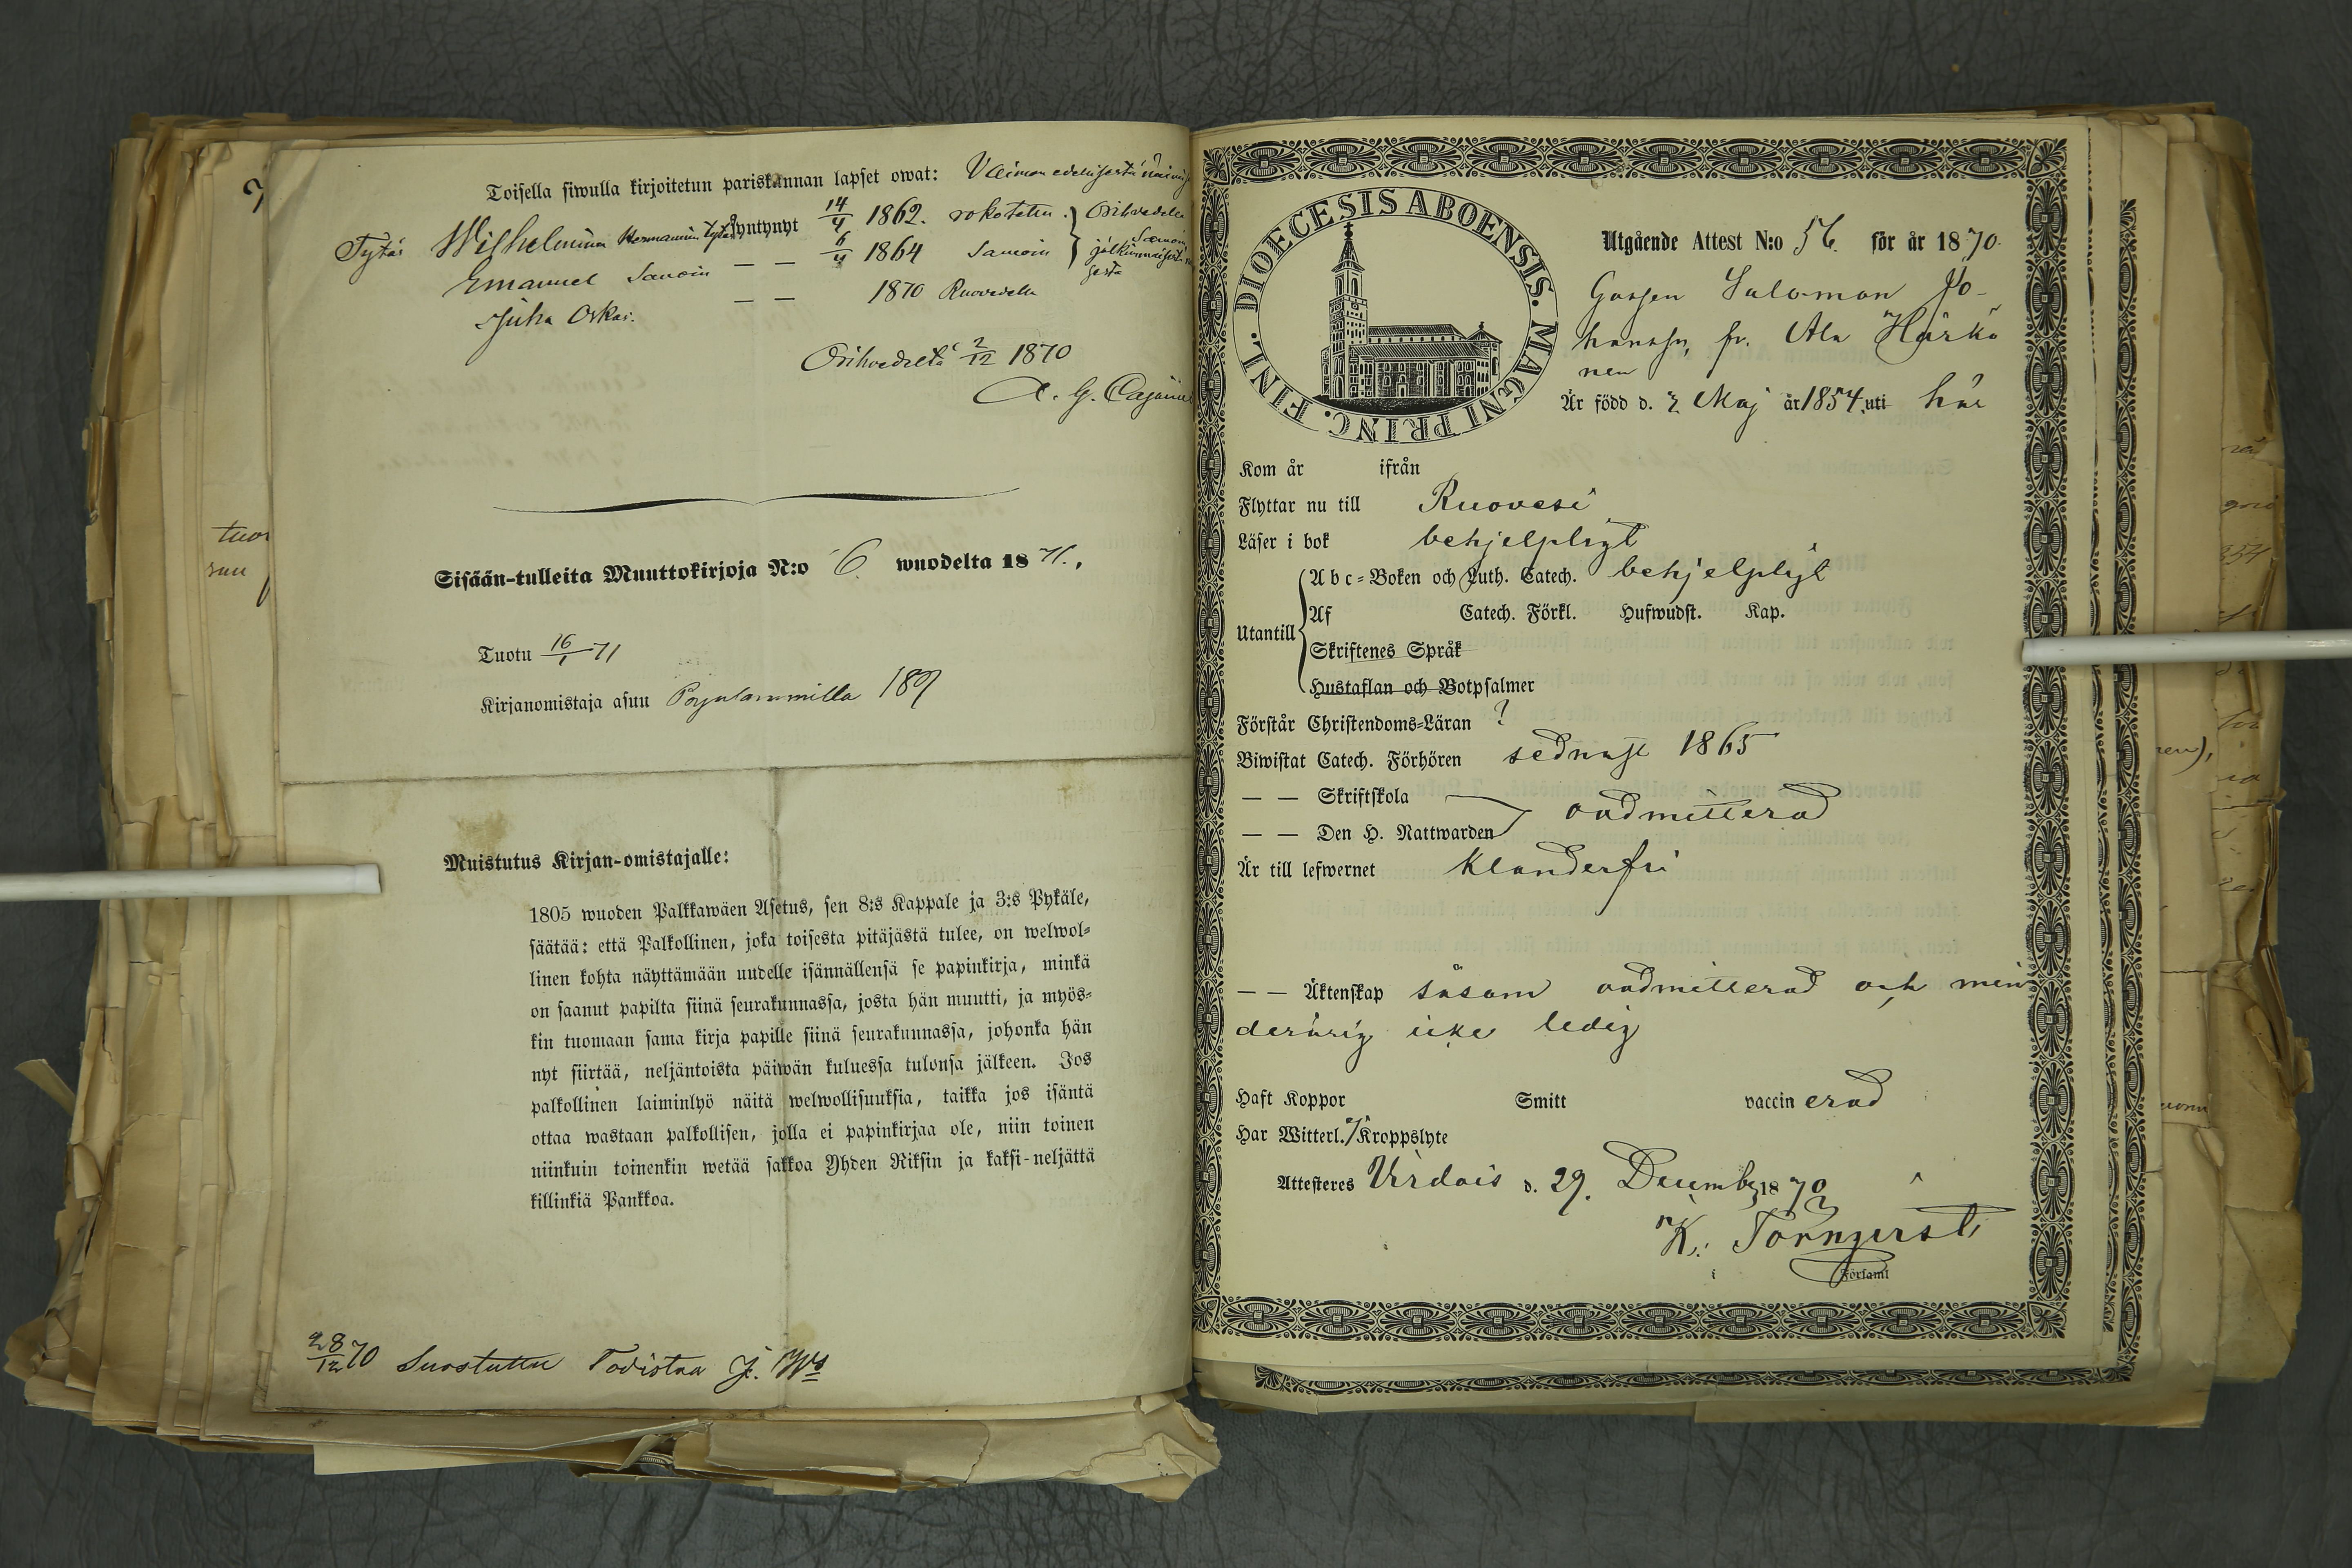 Toisella siwulla kirjoitetun pariskunnan lapset owat: Vaimon edellisestä
Tytär Wilhelmina Hermannin tytär syntynyt 14/4 1862. rokotettu Orihvedellä
Emanuel Samoin — — 6/4 1864 Samoin
Juha Oskar. — — 1870 Ruovedellä
Orihvedeltä 2/12 1870
A. G. Cajanus
Sisään-tulleita Muuttokirjoja N:o 6. wuodelta 1871.
Tuotu 16/1 71
Kirjanomistaja asuu Pojulammilla 189
Muistutus Kirjan-omistajalle:
1805 wuoden Palkkawäen Asetus, sen 8:s Kappale ja 3:s Pykäle,
säätää: että Palkollinen, joka toisesta pitäjästä tulee, on welwol-
linen kohta näyttämään uudelle isännällensä se papinkirja, minkä
on saanut papilta siinä seurakunnassa, josta hän muutti, ja myös-
kin tuomaan sama kirja papille siinä seurakunnassa, johonka hän
nyt siirtää, neljäntoista päiwän kuluessa tulonsa jälkeen. Jos
palkollinen laiminlyö näitä welwollisuuksia, taikka jos isäntä
ottaa wastaan palkollisen, jolla ei papinkirjaa ole, niin toinen
niinkuin toinenkin wetää sakkoa Yhden Riksin ja kaksi-neljättä
killinkiä Pankkoa.
28/12 70 Suostuttu Todistaa J.
DIOECESIS ABOENSIS. MAGNI PRINC. FINL.
Utgående Attest N:o 56. för år 1870.
Gossen Salomon Jo-
hansson, fr. Ala Härkö
nen
Är född d. 3 Maj år 1854, uti här
Kom år ifrån
Flyttar nu till Ruovesi
Läser i bok behjelpligt
Utantill
Abc-Boken och Luth. Catech. behjelpligt
Af Catech. Förkl. Hufwudst. Kap.
Skriftenes Språk
Hustaflan och Botpsalmer
Förstår Christendoms-Läran ?
Biwistat Catech. Förhören sednast 1865
— — Skriftskola
oadmitterad
— — Den H. Nattwarden
Är till lefwernet klanderfri
— — Äktenskap såsom oadmitterad och min
derårig icke ledig
Haft Koppor Smitt vaccinerad
Har Witterl. Kroppslyte
Attesteres Virdois d. 29. Decemb. 1870
K. Törnqvist
Församl